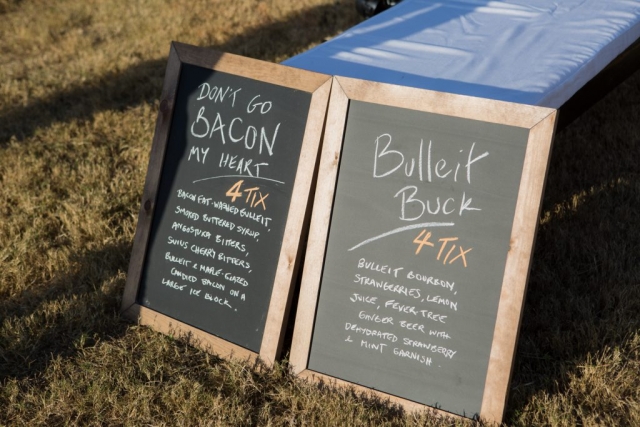 DON'T GO
BACON
MY HEART
4 TIX
BACON FAT-WASHED BULLEIT,
SMOKED BUTTERED SYRUP,
ANGOSTURA BITTERS,
SWISS CHERRY BITTERS,
BULLEIT & MAPLE-GLAZED
CANDIED BACON ON A
LARGE ICE BLOCK.
Bulleit
Buck
4 TIX
BULLEIT BOURBON,
STRAWBERRIES, LEMON
JUICE, FEVER-TREE
GINGER BEER WITH
DEHYDRATED STRAWBERRY
& MINT GARNISH.